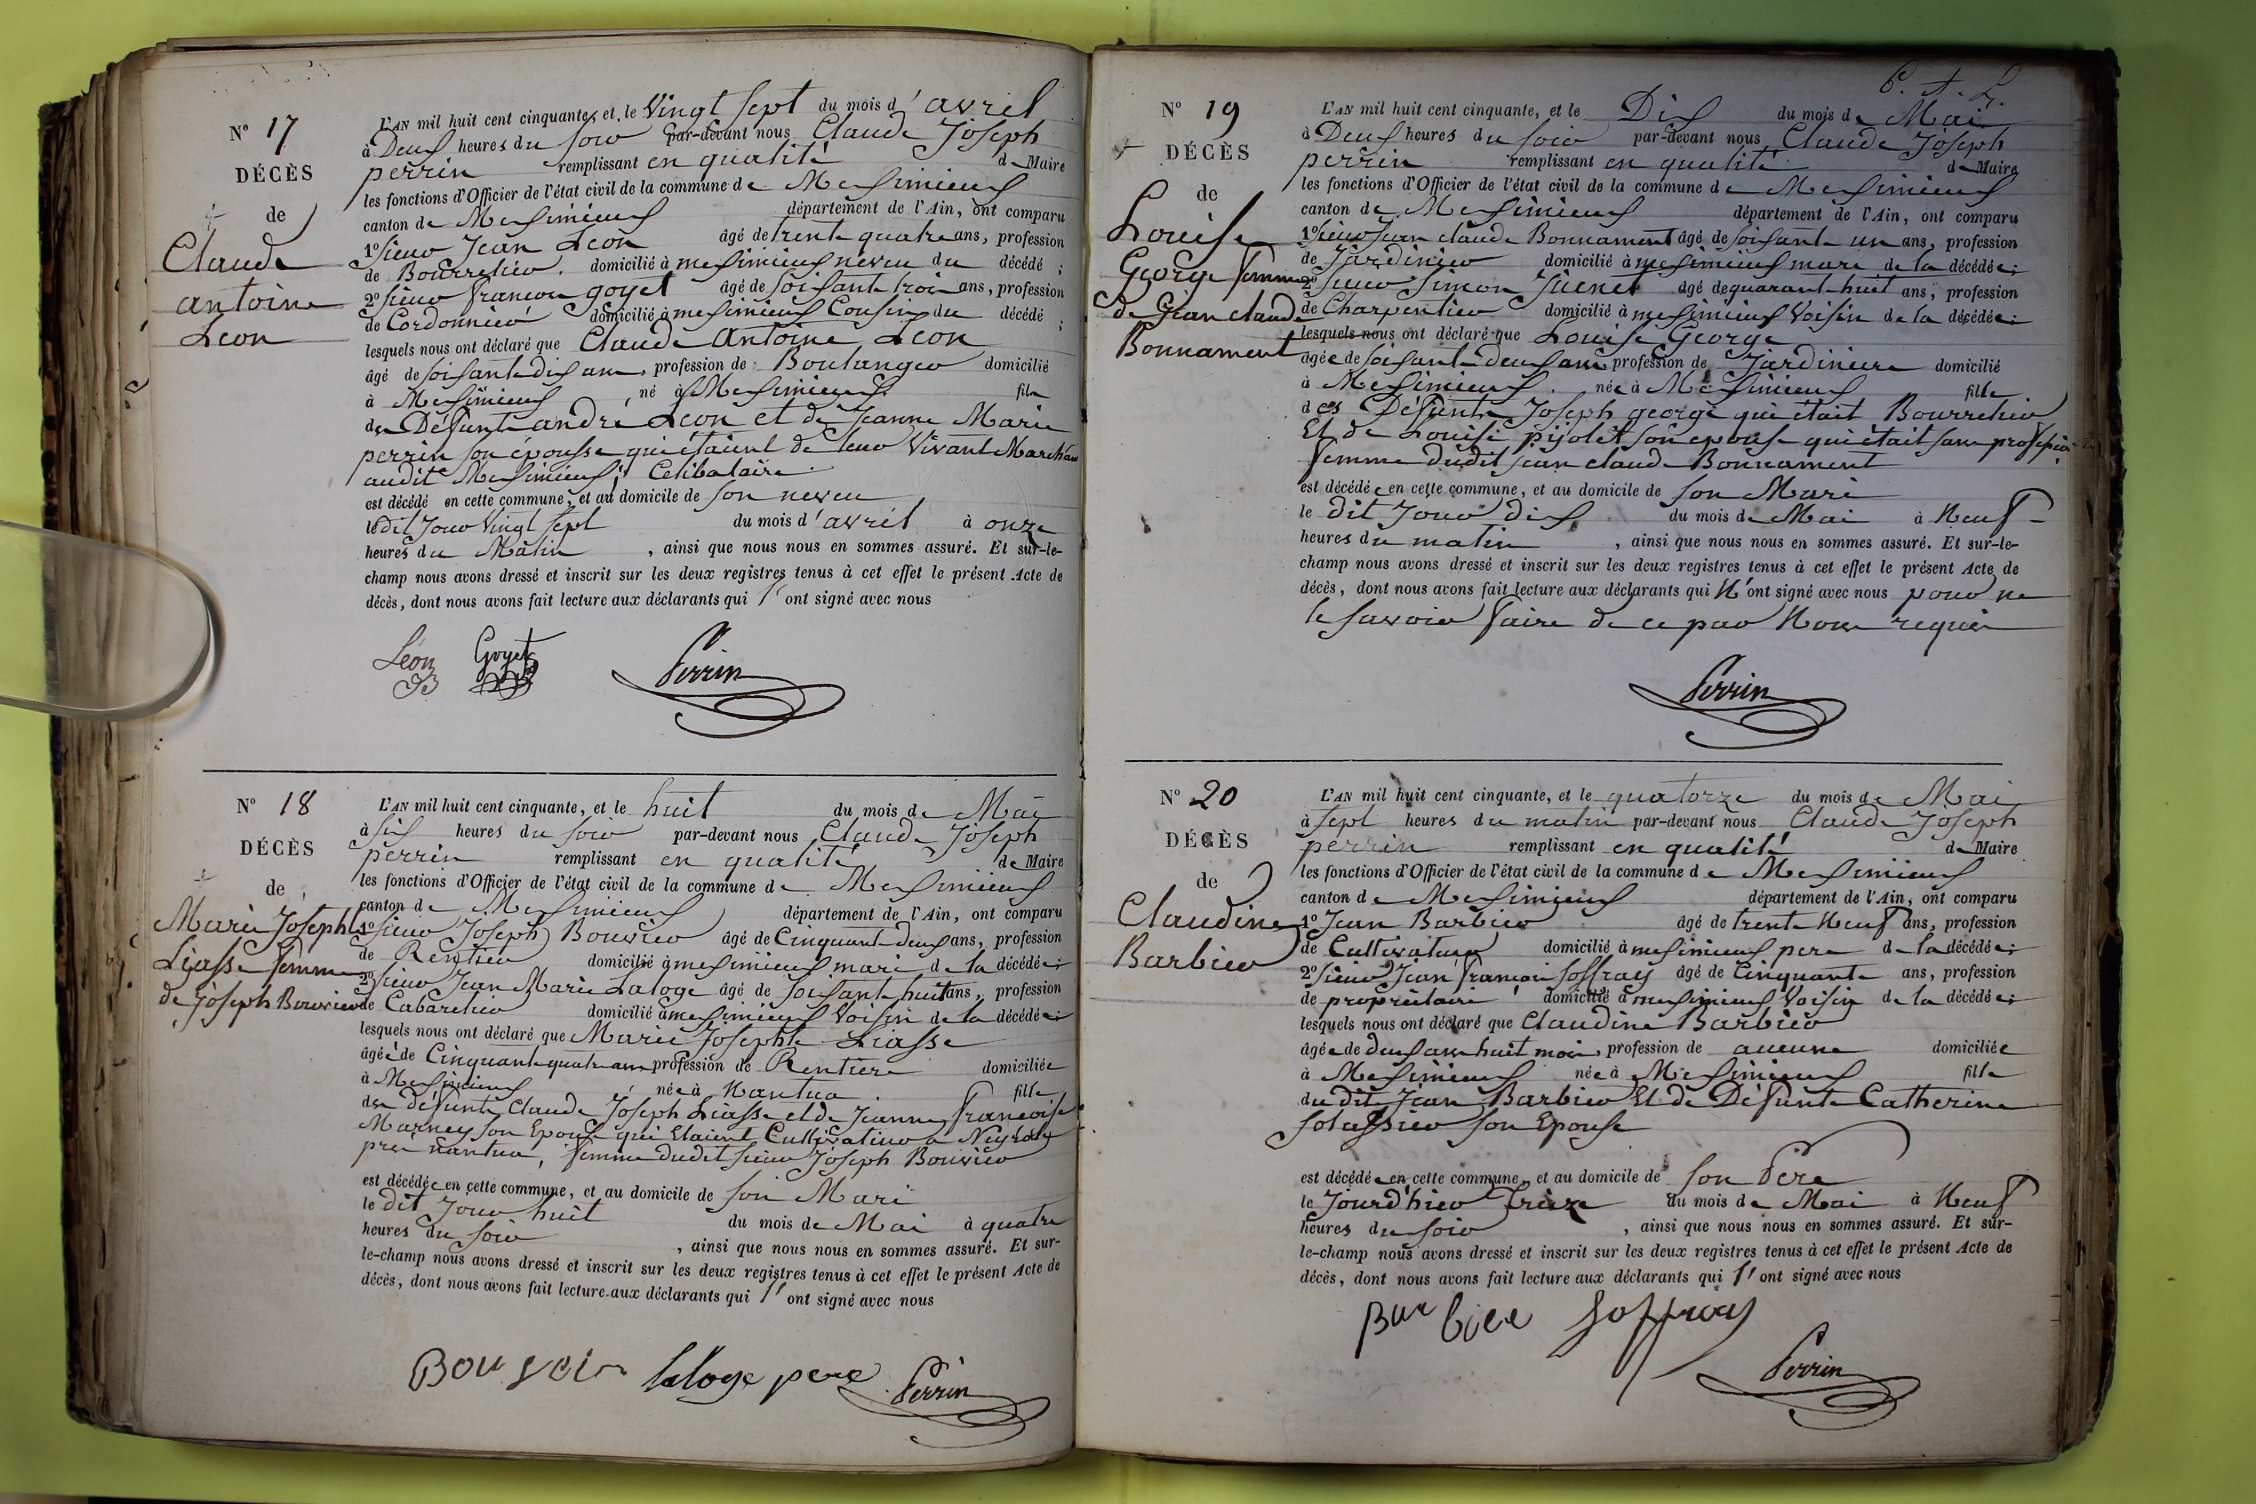 N° 17
DÉCÈS
de
Claude
antoine
Leon
L'AN mil huit cent cinquante, et le Vingt sept du mois d' avril
à Deux heures du soir par-devant nous Claude Joseph
perrin remplissant en qualité de Maire
les fonctions d'Officier de l'état civil de la commune de Meximieux
canton de Meximieux département de l'Ain, ont comparu
1° Sieur Jean Leon âgé de trente quatre ans, profession
de Bourrelier domicilié à meximieux neveu du décédé ;
2° Sieur francois goyet âgé de soixante trois ans, profession
de Cordonnier domicilié à meximieux Cousin du décédé ;
lesquels nous ont déclaré que Claude Antoine Léon
âgé de soixante dix ans profession de Boulanger domicilié
à Meximieux né à Meximieux fils
des Defunts andré Leon et de Jeanne Marie
perrin son épousse qui étaient de leur Vivant Marchands
audit Meximieux, Celibataire
est décédé en cette commune, et au domicile de son neveu
le dit Jour Vingt sept du mois d' avril à onze
heures du Matin , ainsi que nous nous en sommes assuré. Et sur-le-
champ nous avons dressé et inscrit sur les deux registres tenus à cet effet le présent Acte de
décès, dont nous avons fait lecture aux déclarants qui l' ont signé avec nous
Léon Goyet Perrin
N° 18
DÉCÈS
de
Marie Josephte
Liasse femme
de Joseph Bouvier
L'AN mil huit cent cinquante, et le huit du mois de Mai
à six heures du soir par-devant nous Claude Joseph
perrin remplissant en qualité de Maire
les fonctions d'Officier de l'état civil de la commune de Meximieux
canton de Meximieux département de l'Ain, ont comparu
1° Sieur Joseph Bouvier âgé de Cinquante deux ans, profession
de Rentier domicilié à meximieux mari de la décédée ;
2° Sieur Jean Marie Laloge âgé de soixante huit ans, profession
de Cabaretier domicilié à meximieux Voisin de la décédée ;
lesquels nous ont déclaré que Marie Josephte Liasse
âgée de Cinquante quatre ans profession de Rentiere domiciliée
à Meximieux née à Nantua fille
des défunts Claude Joseph Liasse et de Jeanne Françoise
Marney son Epouse qui Etaient Cultivateur a Neyrolle
près nantua, femme dudit sieur Joseph Bouvier
est décédée en cette commune, et au domicile de son Mari
le dit Jour huit du mois de Mai à quatre
heures du soir , ainsi que nous nous en sommes assuré. Et sur-
le-champ nous avons dressé et inscrit sur les deux registres tenus à cet effet le présent Acte de
décès, dont nous avons fait lecture aux déclarants qui l' ont signé avec nous
Bouvier laloge pere Perrin
N° 19
DÉCÈS
de
Louise
George femme
de Jean claude
Bonnament
L'AN mil huit cent cinquante, et le Dix du mois de Mai
à Deux heures du soir par-devant nous Claude Joseph
perrin remplissant en qualité de Maire
les fonctions d'Officier de l'état civil de la commune de Meximieux
canton de Meximieux département de l'Ain, ont comparu
1° Sieur Jean claude Bonnament âgé de soixante un ans, profession
de Jardinier domicilié à meximieux mari de la décédée ;
2° Sieur Simon âgé de quarante huit ans, profession
de Charpentier domicilié à meximieux Voisin de la décédée ;
lesquels nous ont déclaré que Louise George
âgée de soixante deux ans profession de Jardiniere domicilié
à Meximieux née à Meximieux fille
des Défunts Joseph george qui était Bourrelier
Et de Louise pijolet son epouse qui était sans profession
femme dudit jean claude Bonnament
est décédée en cette commune, et au domicile de son Mari
le dit Jour dix du mois de Mai à Neuf
heures du matin , ainsi que nous nous en sommes assuré. Et sur-le-
champ nous avons dressé et inscrit sur les deux registres tenus à cet effet le présent Acte de
décès, dont nous avons fait lecture aux déclarants qui N' ont signé avec nous pour ne
le savoir faire de ce par Nous requis
Perrin
N° 20
DÉCÈS
de
Claudine
Barbier
L'AN mil huit cent cinquante, et le quatorze du mois de Mai
à sept heures du matin par-devant nous Claude Joseph
perrin remplissant en qualité de Maire
les fonctions d'Officier de l'état civil de la commune de Meximieux
canton de Meximieux département de l'Ain, ont comparu
1° Jean Barbier âgé de trente Neuf ans, profession
de Cultivateur domicilié à meximieux pere de la décédée ;
2° Sieur Jean françois Soffray âgé de Cinquante ans, profession
de propriétaire domicilié à meximieux Voisin de la décédée ;
lesquels nous ont déclaré que Claudine Barbier
âgée de deux ans huit mois profession de aucune domiciliée
à Meximieux née à Meximieux fille
du dit Jean Barbier Et de Défunte Catherine
son Epouse
est décédée en cette commune, et au domicile de son Père
le Jourd'hier treize du mois de Mai à Neuf
heures du soir , ainsi que nous nous en sommes assuré. Et sur-
le-champ nous avons dressé et inscrit sur les deux registres tenus à cet effet le présent Acte de
décès, dont nous avons fait lecture aux déclarants qui l' ont signé avec nous
Barbier Soffray
Perrin